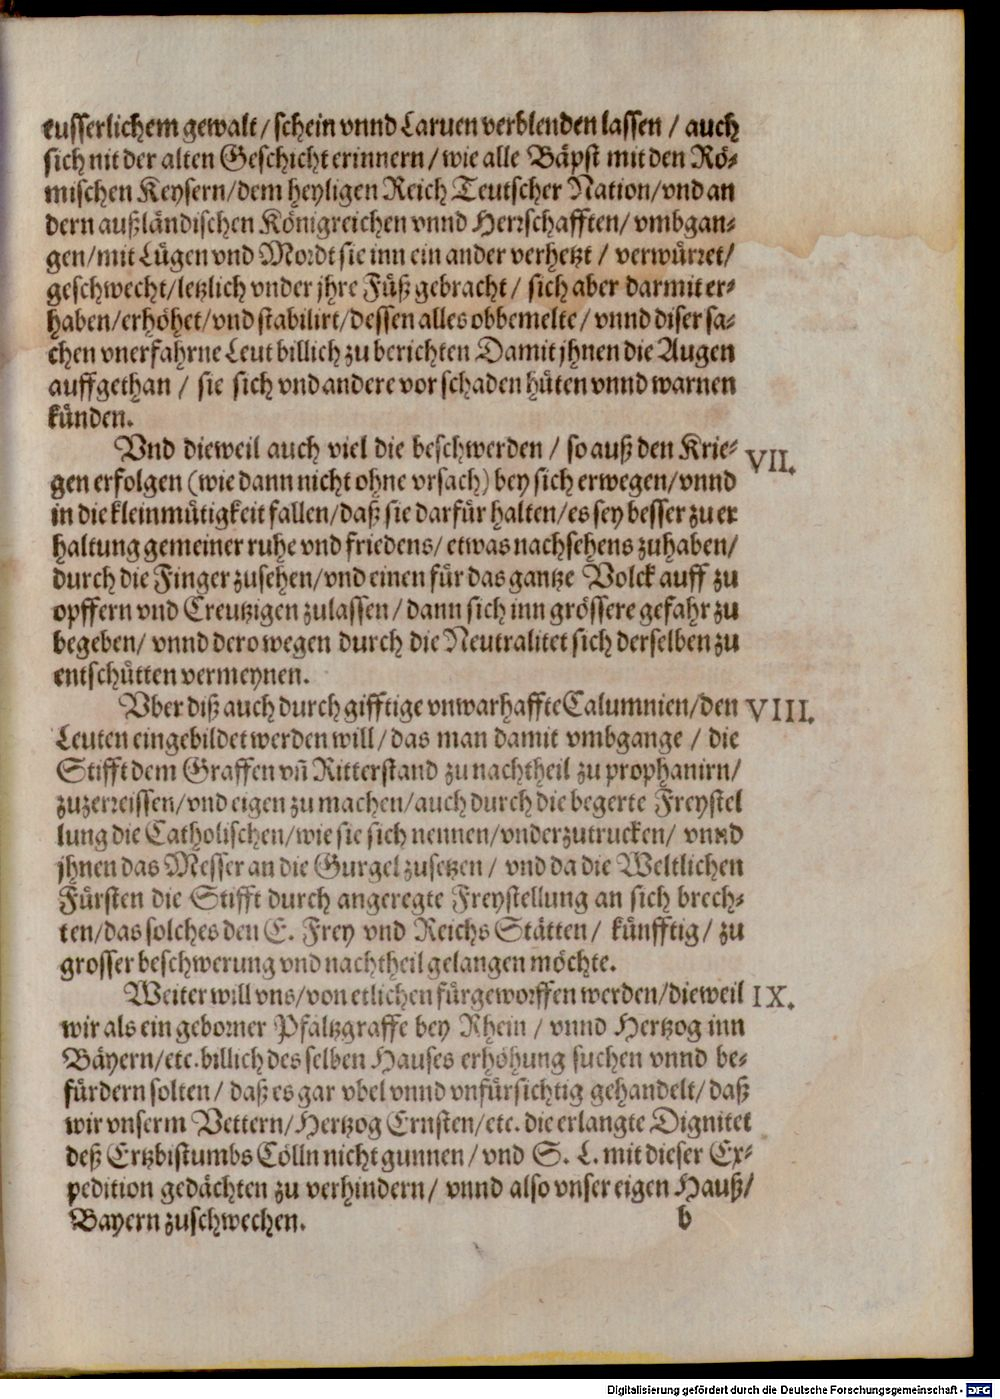 eusserlichem gewalt / schein vnnd Laruen verblenden lassen / auch
sich nit der alten Geschicht erinnern / wie alle Bäpst mit den Rö-
mischen Keysern/dem heyligen Reich Teutscher Nation/vnd an
dern außländischen Königreichen vnnd Herrschafften/ vmbgan-
gen/mit Lügen vnd Mordt sie inn ein ander verhetzt / verwürret/
geschwecht/letzlich vnder jhre Füß gebracht / sich aber darmit er-
haben/erhöhet/vnd stabilirt/dessen alles obbemelte / vnnd diser sa-
chen vnerfahrne Leut billich zu berichten Damit jhnen die Augen
auffgethan / sie sich vnd andere vor schaden hüten vnnd warnen
künden.
Vnd dieweil auch viel die beschwerden / so auß den Krie- VII.
gen erfolgen (wie dann nicht ohne vrsach) bey sich erwegen/vnnd
in die kleinmütigkeit fallen/daß sie darfür halten/es sey besser zu er
haltung gemeiner ruhe vnd friedens/ etwas nachsehens zuhaben/
durch die Finger zusehen/vnd einen für das gantze Volck auff zu
opffern vnd Creutzigen zulassen / dann sich inn grössere gefahr zu
begeben/ vnnd dero wegen durch die Neutralitet sich derselben zu
entschütten vermeynen.
Vber diß auch durch gifftige vnwarhaffte Calumnien/den VIII.
Leuten eingebildet werden will / das man damit vmbgange / die
Stifft dem Graffen vñ Ritterstand zu nachtheil zu prophanirn/
zuzerreissen/vnd eigen zu machen/auch durch die begerte Freystel
lung die Catholischen/wie sie sich nennen/vnderzutrucken/ vnnd
jhnen das Messer an die Gurgel zusetzen / vnd da die Weltlichen
Fürsten die Stifft durch angeregte Freystellung an sich brech-
ten/das solches den E. Frey vnd Reichs Stätten / künfftig / zu
grosser beschwerung vnd nachtheil gelangen möchte.
Weiter will vns/von etlichen fürgeworffen werden/dieweil IX.
wir als ein geborner Pfaltzgraffe bey Rhein / vnnd Hertzog inn
Bäyern/etc. billich desselben Hauses erhöhung suchen vnnd be-
fürdern solten / daß es gar vbel vnnd vnfürsichtig gehandelt/ daß
wir vnserm Vettern/Hertzog Ernsten/etc. die erlangte Dignitet
deß Ertzbistumbs Cölln nicht gunnen / vnd S. L. mit dieser Ex-
pedition gedächten zu verhindern/ vnnd also vnser eigen Hauß/
Bayern zuschwechen.
b
Digitalisierung gefördert durch die Deutsche Forschungsgemeinschaft - DFG